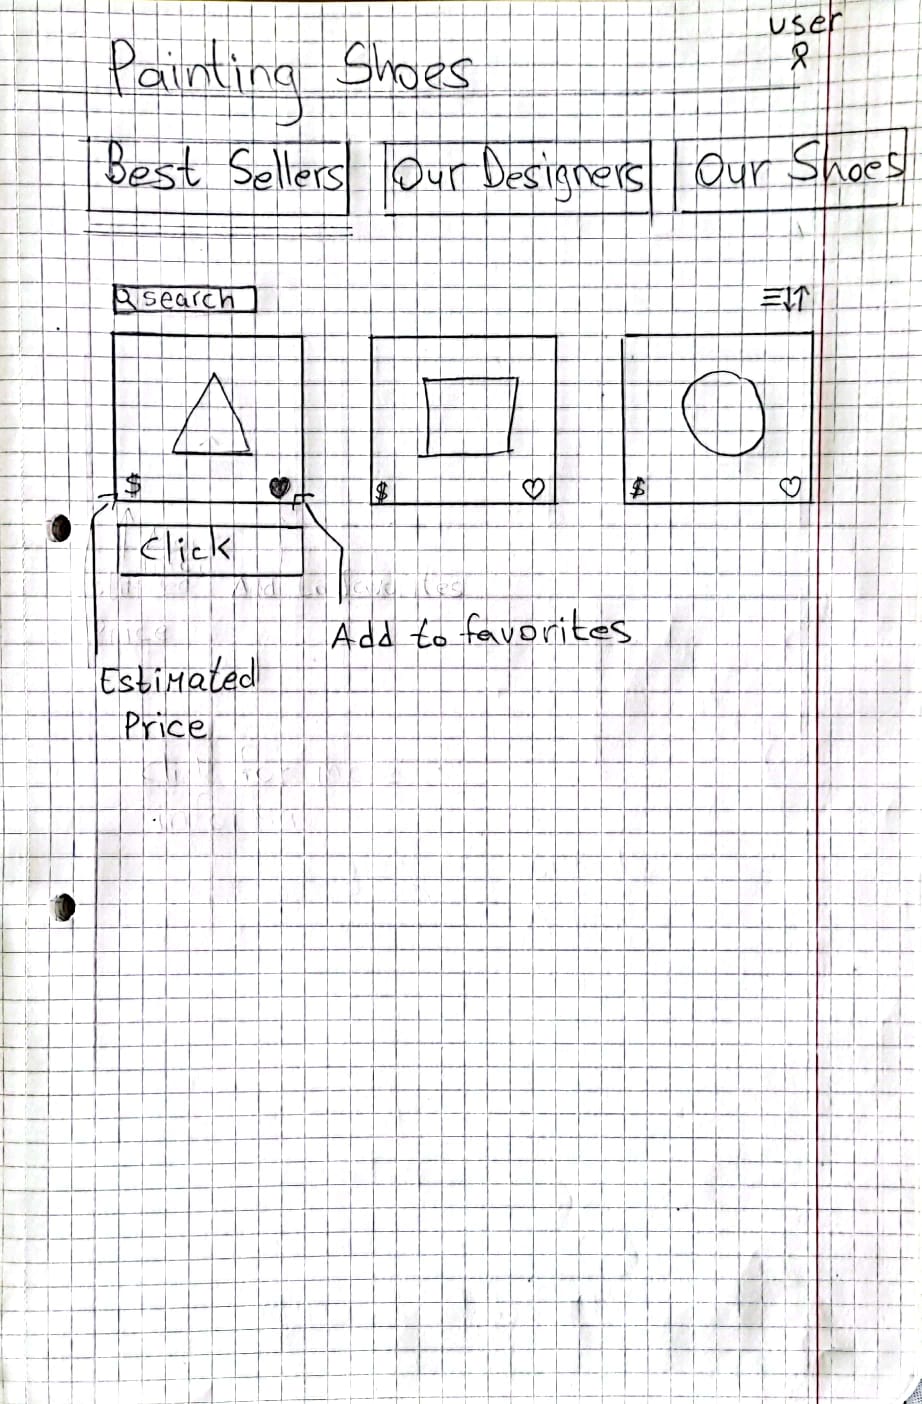 user
Painting Shoes
Best Sellers Our Designers Our Shoes
search
$ $ $
Click
Add to favorites
Estimated
Price